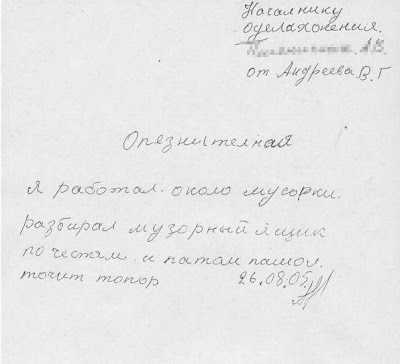 Началнику
оделахонения.
А.В.
от Андреева В. Г
Опезнителная
я работал. около мусорки.
разбирал музорный ящик
по честям и патом памол.
точит топор 26.08.05.